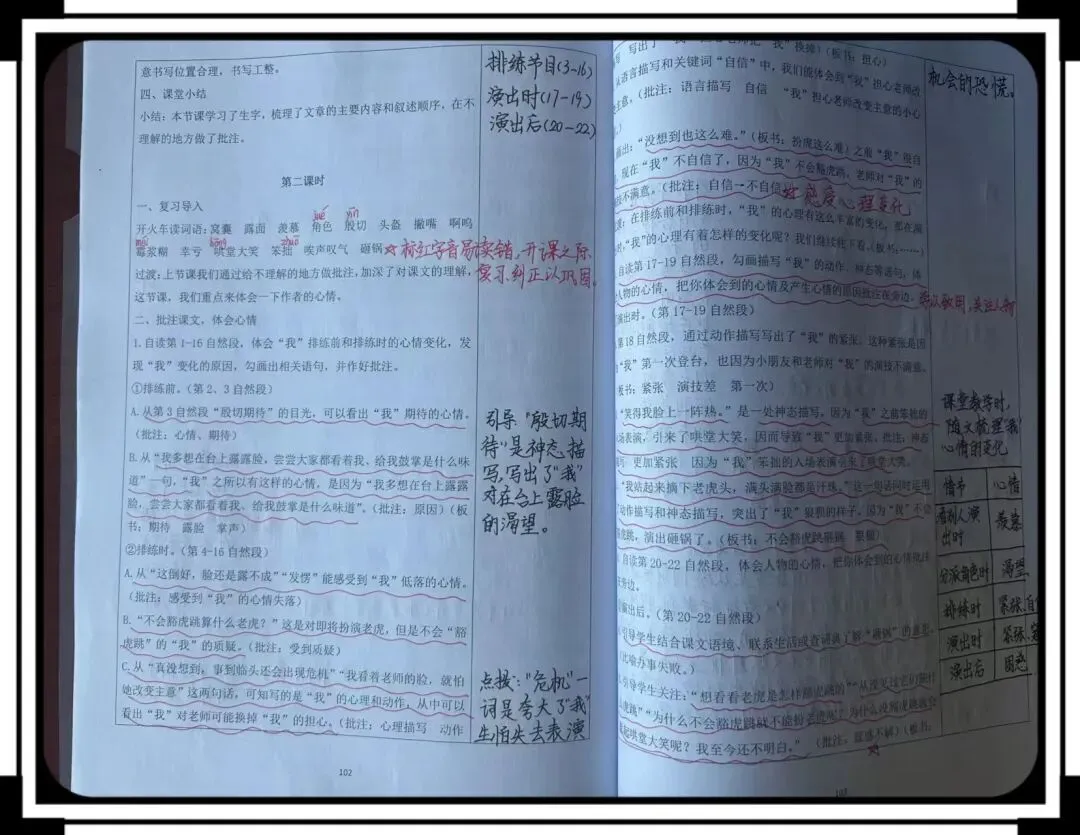 意书写位置合理，书写工整。
四、课堂小结
小结：本节课学习了生字，梳理了文章的主要内容和叙述顺序，在不
理解的地方做了批注。
排练节目(3-16)
演出时(17-19)
演出后(20-22)
第二课时
一、复习导入
jué yīn
开火车读词语：窝囊 露面 羡慕 角色 殷切 头盔 撇嘴 啊呜
méi hōng zhuō
霉浆糊 幸亏 哄堂大笑 笨拙 唉声叹气 砸锅
☆标红字音易读错，开课之际
复习纠正以巩固。
过渡：上节课我们通过给不理解的地方做批注，加深了对课文的理解，
这节课，我们重点来体会一下作者的心情。
二、批注课文，体会心情
1.自读第 1-16 自然段，体会“我”排练前和排练时的心情变化，发
现“我”变化的原因，勾画出相关语句，并作好批注。
①排练前。（第 2、3 自然段）
A.从第 3 自然段“殷切期待”的目光，可以看出“我”期待的心情。
（批注：心情、期待）
B.从“我多想在台上露露脸，尝尝大家都看着我、给我鼓掌是什么味
道”一句，“我”之所以有这样的心情，是因为“我多想在台上露露
脸，尝尝大家都看着我、给我鼓掌是什么味道”。（批注：原因）（板
书：期待 露脸 掌声）
②排练时。（第 4-16 自然段）
A.从“这倒好，脸还是露不成”“发愣”能感受到“我”低落的心情。
（批注：感受到“我”的心情失落）
B.“不会豁虎跳算什么老虎？”这是对即将扮演老虎，但是不会“豁
虎跳”的“我”的质疑。（批注：受到质疑）
C.从“真没想到，事到临头还会出现危机”“我看着老师的脸，就怕
她改变主意”这两句话，可知写的是“我”的心理和动作，从中可以
看出“我”对老师可能换掉“我”的担心。（批注：心理描写 动作
引导“殷切期
待”是神态描
写，写出了“我”
对在台上露脸
的渴望。
点拨：“危机”一
词是夸大了“我”
生怕失去表演
102
换掉）（板书：担心）
从语言描写和关键词“自信”中，我们能体会到“我”担心老师改
主意，（批注：语言描写 自信 “我”担心老师改变主意的小心
机会的恐慌。
画出：“没想到也这么难。”（板书：扮虎这么难）之前“我”很自
，现在“我”不自信了，因为“我”不会豁虎跳，老师对“我”的
技不满意。（批注：自信→不自信
感受心理变化
：在排练前和排练时，“我”的心理有这么丰富的变化，那在演
时，“我”的心理有着怎样的变化呢？我们继续往下看。（板书：……）
自读第 17-19 自然段，勾画描写“我”的动作、神态等语句，体
人物的心情，把你体会到的心情及产生心情的原因批注在旁边。
演出时。（第 17-19 自然段）
第 18 自然段，通过动作描写写出了“我”的紧张。这种紧张是因
“我”第一次登台，也因为小朋友和老师对“我”的演技不满意。
板书：紧张 演技差 第一次）
“笑得我脸上一阵热。”是一处神态描写。因为“我”之前笨拙的
场表演，引来了哄堂大笑，因而导致“我”更加紧张。批注：神态
更加紧张 因为“我”笨拙的入场表演引来了哄堂大笑。
“我站起来摘下老虎头，满头满脸都是汗珠。”这一句话同时运用
了动作描写和神态描写，突出了“我”狼狈的样子。因为“我”不会
虎跳，演出砸锅了。（板书：不会豁虎跳 狼狈）
自读第 20-22 自然段，体会人物的心情，把你体会到的心情批注
旁边。
演出后。（第 20-22 自然段）
引导学生结合课文语境、联系生活或查词典了解“砸锅”的意思。
（比喻办事失败。）
引导学生关注：“想看看老虎是怎样豁虎跳的”
虎跳”“为什么不会豁虎跳就不能扮老虎呢？为什么没豁虎跳就会
起哄堂大笑呢？我至今还不明白。”
课堂教学时，
随文梳理“我”
心情的变化
情节 心情
看别人演出时 羡慕
分派角色时 渴望
排练时 紧张、自
演出时 紧张、
演出后 困惑